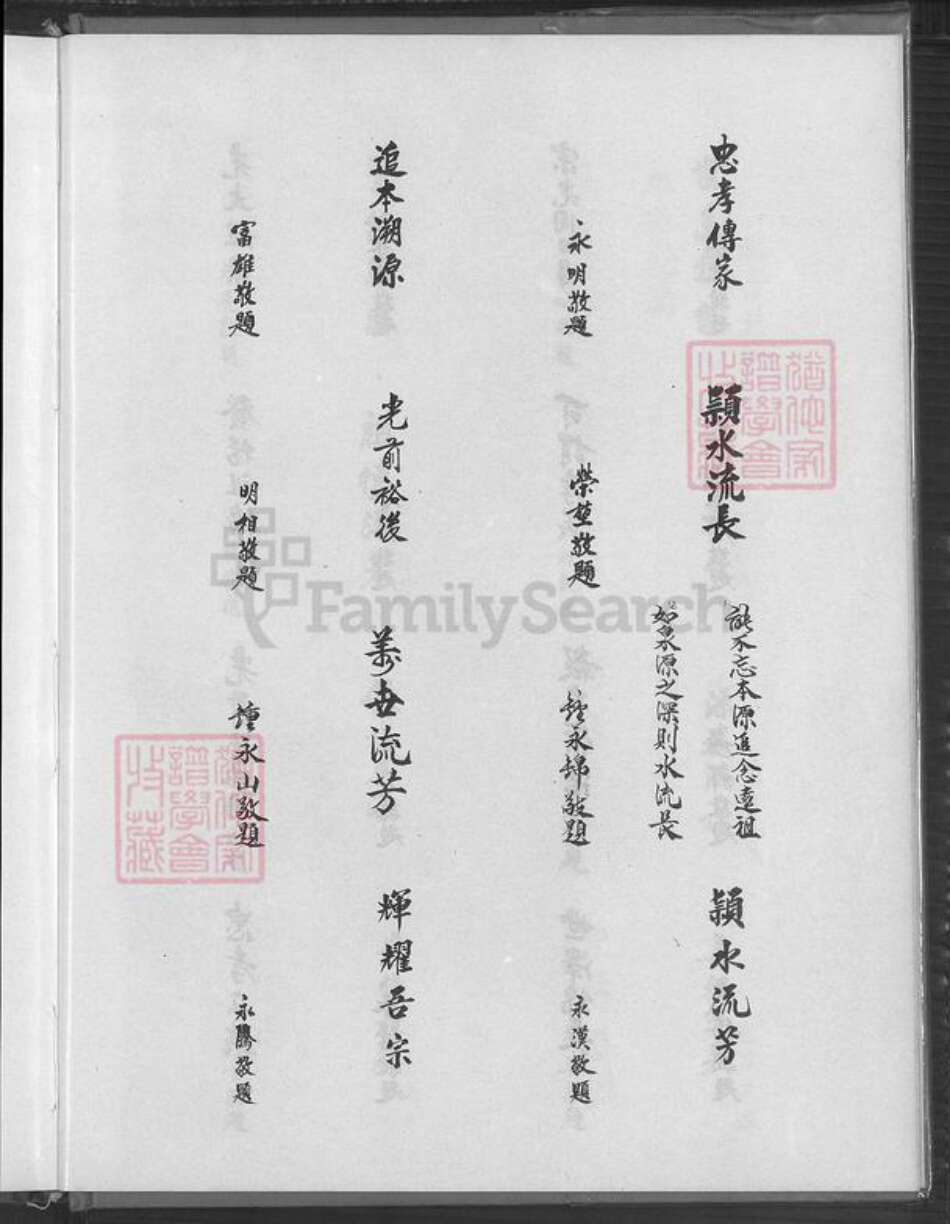 忠孝傳家
永明敬題
潁水流長
能不忘本源追念遠祖
如水源之深則水流長
敬題
鍾永錦敬題
潁水流芳
永漢敬題
追本溯源
富雄敬題
光前裕後
明相敬題
萬世流芳
鍾永山敬題
輝耀吾宗
永騰敬題
譜學會
譜學會
收藏
FamilySearch